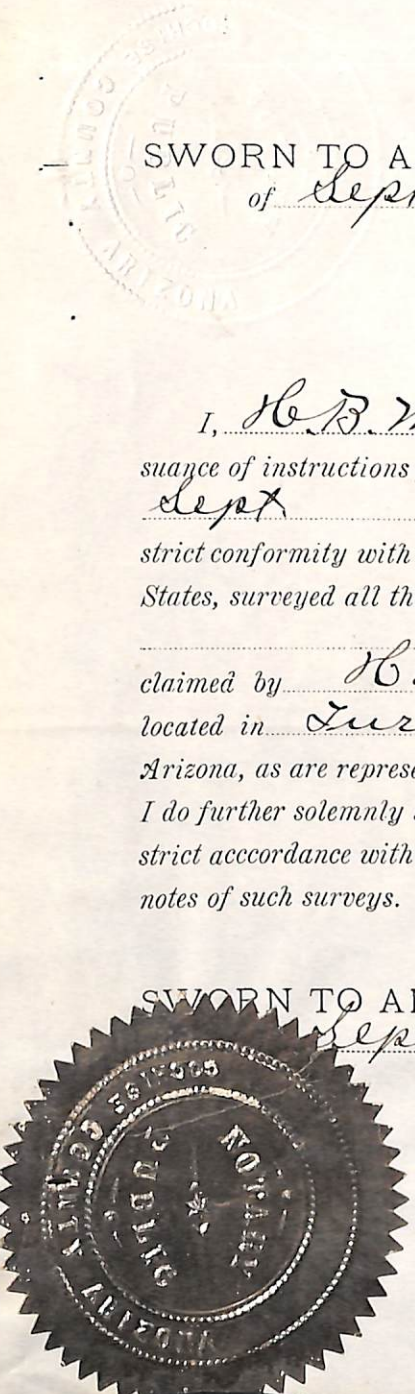 COCHISE COUNTY
ARIZONA
PUBLIC
SWORN TO A
of Sept
I, H. B. M
suance of instructions
Sept
strict conformity with
States, surveyed all th
claimed by H.
located in Tur
Arizona, as are represe
I do further solemnly
strict acccordance with
notes of such surveys.
SWORN TO A
Sep
COCHISE COUNTY
ARIZONA
NOTARY
PUBLIC